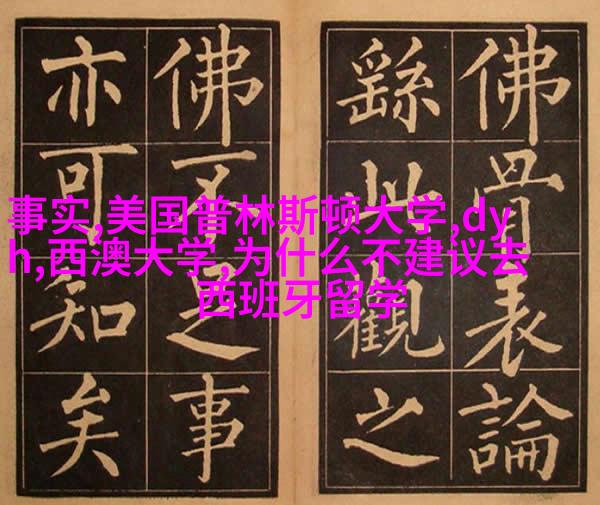 事实,美国普林斯顿大学,dy
h,西澳大学,为什么不建议去
西班牙留学
佛骨表論
繇此觀之
佛不足事
亦可知矣